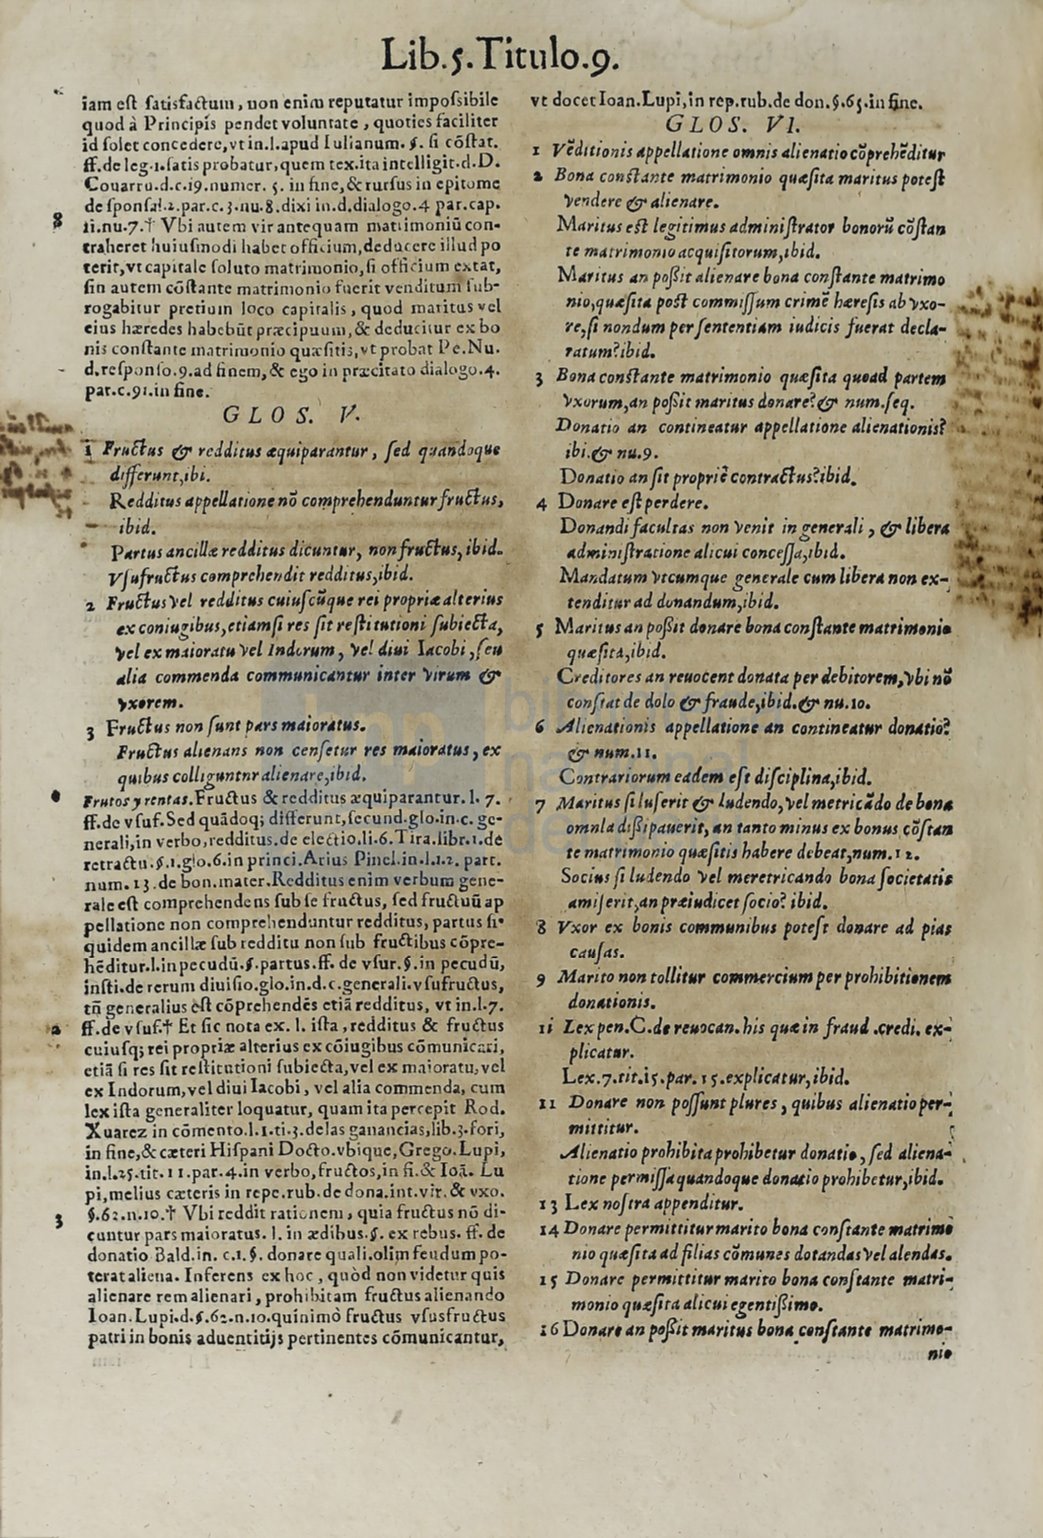 Lib.5.Titulo.9.
iam est satisfactum, non enim reputatur impossibile
quod à Principis pendet voluntate, quoties faciliter
id solet concedere, vt in.l.apud Iulianum.§. si cōstat.
ff.de leg.1.satis probatur, quem tex.ita intelligit.d.D.
Couarru.d.c.19.numer. 5. in fine, & rursus in epitome
de sponsal.2.par.c.3.nu.8.dixi in.d.dialogo.4 par.cap.
8 11.nu.7.† Vbi autem vir antequam matrimoniū con-
traheret huiusmodi habet officium, deducere illud po
terit, vt capitale soluto matrimonio, si officium extat,
sin autem cōstante matrimonio fuerit venditum sub-
rogabitur pretium loco capitalis, quod maritus vel
eius hæredes habebūt præcipuum, & deducitur ex bo
nis constante matrimonio quæsitis, vt probat Pe.Nu.
d.responso.9.ad finem, & ego in præcitato dialogo.4.
par.c.91.in fine.
GLOS. V.
1 Fructus & redditus æquiparantur, sed quandoque
differunt, ibi.
Redditus appellatione nō comprehenduntur fructus,
ibid.
Partus ancillæ redditus dicuntur, non fructus, ibid.
Vsufructus comprehendit redditus, ibid.
2 Fructus vel redditus cuiuscūque rei propriæ alterius
ex coniugibus, etiamsi res sit restitutioni subiecta,
vel ex maioratu vel Indorum, vel diui Iacobi, seu
alia commenda communicantur inter virum &
vxorem.
3 Fructus non sunt pars maioratus.
Fructus alienans non censetur res maioratus, ex
quibus colliguntnr alienare, ibid.
Frutos y rentas. Fructus & redditus æquiparantur. l. 7.
ff.de vsuf.Sed quādoq; differunt, secund.glo.in.c. ge-
nerali, in verbo, redditus.de electio.li.6.Tira.libr.1.de
retractu.§.1.glo.6.in princi.Arius Pinel.in.l.1.2. part.
num. 13.de bon.mater.Redditus enim verbum gene-
rale est comprehendens sub se fructus, sed fructuū ap
pellatione non comprehenduntur redditus, partus si-
quidem ancillæ sub redditu non sub fructibus cōpre-
hēditur.l.in pecudū.§.partus.ff. de vsur.§.in pecudū,
insti.de rerum diuisio.glo.in.d.c.generali.vsufructus,
tn̄ generalius est cōprehendēs etiā redditus, vt in.l.7.
2 ff.de vsuf.† Et sic nota ex. l. ista, redditus & fructus
cuiusq; rei propriæ alterius ex cōiugibus cōmunicari,
etiā si res sit restitutioni subiecta, vel ex maioratu, vel
ex Indorum, vel diui Iacobi, vel alia commenda, cum
lex ista generaliter loquatur, quam ita percepit Rod.
Xuarez in cōmento.l.1.ti.3.delas ganancias, lib.3.fori,
in fine, & cæteri Hispani Docto.vbique, Grego.Lupi,
in.l.25.tit.11.par.4.in verbo, fructos, in fi.& Ioā. Lu
pi, melius cæteris in repe.rub.de dona.int.vir. & vxo.
3 §.62.n.10.† Vbi reddit rationem, quia fructus nō di-
cuntur pars maioratus. l. in ædibus.§. ex rebus. ff. de
donatio Bald.in. c.1.§. donare quali.olim feudum po-
terat aliena. Inferens ex hoc, quòd non videtur quis
alienare rem alienari, prohibitam fructus alienando
Ioan.Lupi.d.§.62.n.10.quinimò fructus vsusfructus
patri in bonis aduentitijs pertinentes cōmunicantur,
vt docet Ioan.Lupi, in rep.rub.de don.§.65.in fine.
GLOS. VI.
1 Vēditionis appellatione omnis alienatio cōprehēditur
2 Bona constante matrimonio quæsita maritus potest
vendere & alienare.
Maritus est legitimus administrator bonorū cōstan
te matrimonio acquisitorum, ibid.
Maritus an possit alienare bona constante matrimo
nio, quæsita post commissum crimē hæresis ab vxo-
re, si nondum per sententiam iudicis fuerat decla-
ratum? ibid.
3 Bona constante matrimonio quæsita quoad partem
vxorum, an possit maritus donare? & num.seq.
Donatio an contineatur appellatione alienationis?
ibi.& nu.9.
Donatio an sit propriè contractus? ibid.
4 Donare est perdere.
Donandi facultas non venit in generali, & libera
administratione alicui concessa, ibid.
Mandatum vtcumque generale cum libera non ex-
tenditur ad donandum, ibid.
5 Maritus an possit donare bona constante matrimonio
quæsita, ibid.
Creditores an reuocent donata per debitorem, vbi nō
constat de dolo & fraude, ibid.& nu.10.
6 Alienationis appellatione an contineatur donatio?
& num.11.
Contrariorum eadem est disciplina, ibid.
7 Maritus si luserit & ludendo, vel metricādo de bona
omnIa dissipauerit, an tanto minus ex bonus cōstan
te matrimonio quæsitis habere debeat, num.12.
Socius si ludendo vel meretricando bona societatis
amiserit, an præiudicet socio? ibid.
8 Vxor ex bonis communibus potest donare ad pias
causas.
9 Marito non tollitur commercium per prohibitionem
donationis.
11 Lex pen.C.de reuocan.his quæ in fraud.credi. ex-
plicatur.
Lex.7.tit.15.par.15.explicatur, ibid.
11 Donare non possunt plures, quibus alienatio per-
mittitur.
Alienatio prohibita prohibetur donatio, sed aliena-
tione permissa quandoque donatio prohibetur, ibid.
13 Lex nostra appenditur.
14 Donare permittitur marito bona constante matrimo
nio quæsita ad filias cōmunes dotandas vel alendas.
15 Donare permittitur marito bona constante matri-
monio quæsita alicui egentissimo.
16 Donare an possit maritus bona constante matrimo-
nio